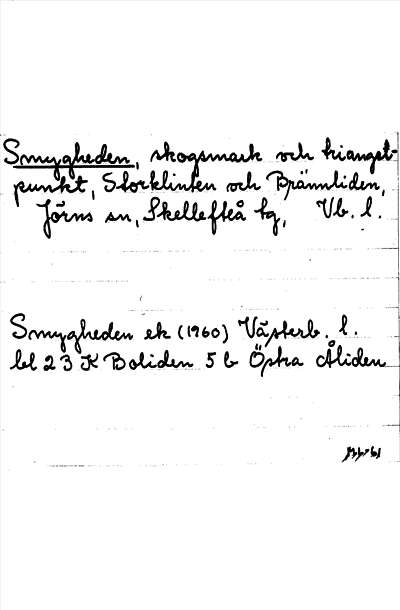 Smygheden, skogsmark och triangel-
punkt, Storklinten och Brännliden,
Jörns sn, Skellefteå tg, Vb. l.
Smygheden ek (1960) Västerb. l.
bl 23 K Boliden 5 b Östra Åliden